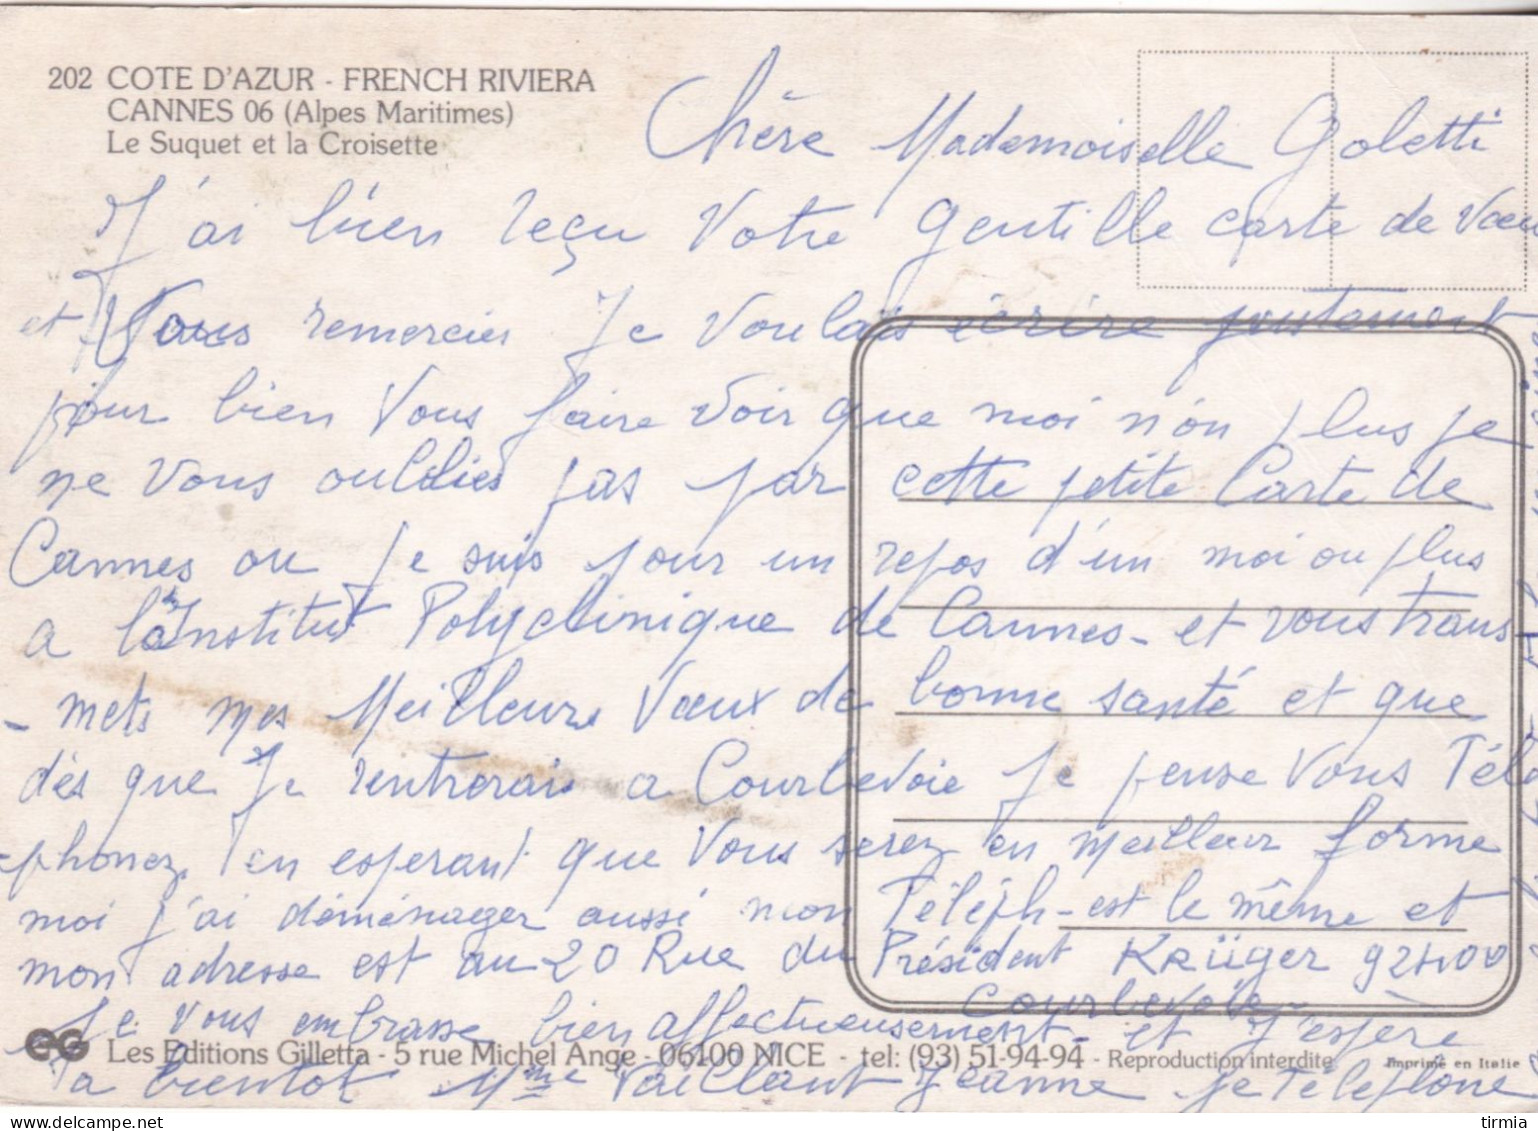 202 COTE D'AZUR - FRENCH RIVIERA
CANNES 06 (Alpes Maritimes)
Le Suquet et la Croisette
Chère Mademoiselle Goletti
J'ai bien reçu Votre gentille carte de Vœu
et Vous remercies Je Voulais écrire justement
pour bien Vous faire Voir que moi n'on plus je
ne Vous oublies pas par cette petite Carte de
Cannes ou Je suis pour un repos d'un moi ou plus
a l'Institut Polyclinique de Cannes - et vous trans-
- mets mes Meilleurs Vœux de bonne santé et que
dès que Je rentrerais a Courbevoie Je pense Vous Télé
phonez, en esperant que Vous serez en meilleur forme
moi j'ai déménager aussi mon Téléph - est le même et
mon adresse est au 20 Rue du Président Krüger 92400
Courbevoie -
Je Vous embrasse bien affectueusement - et J'espère
a bientot Mme Vaillant Jeanne Je Téléphone
EG Les Editions Gilletta - 5 rue Michel Ange - 06100 NICE - tel: (93) 51-94-94 - Reproduction interdite Imprimé en Italie
tirmia